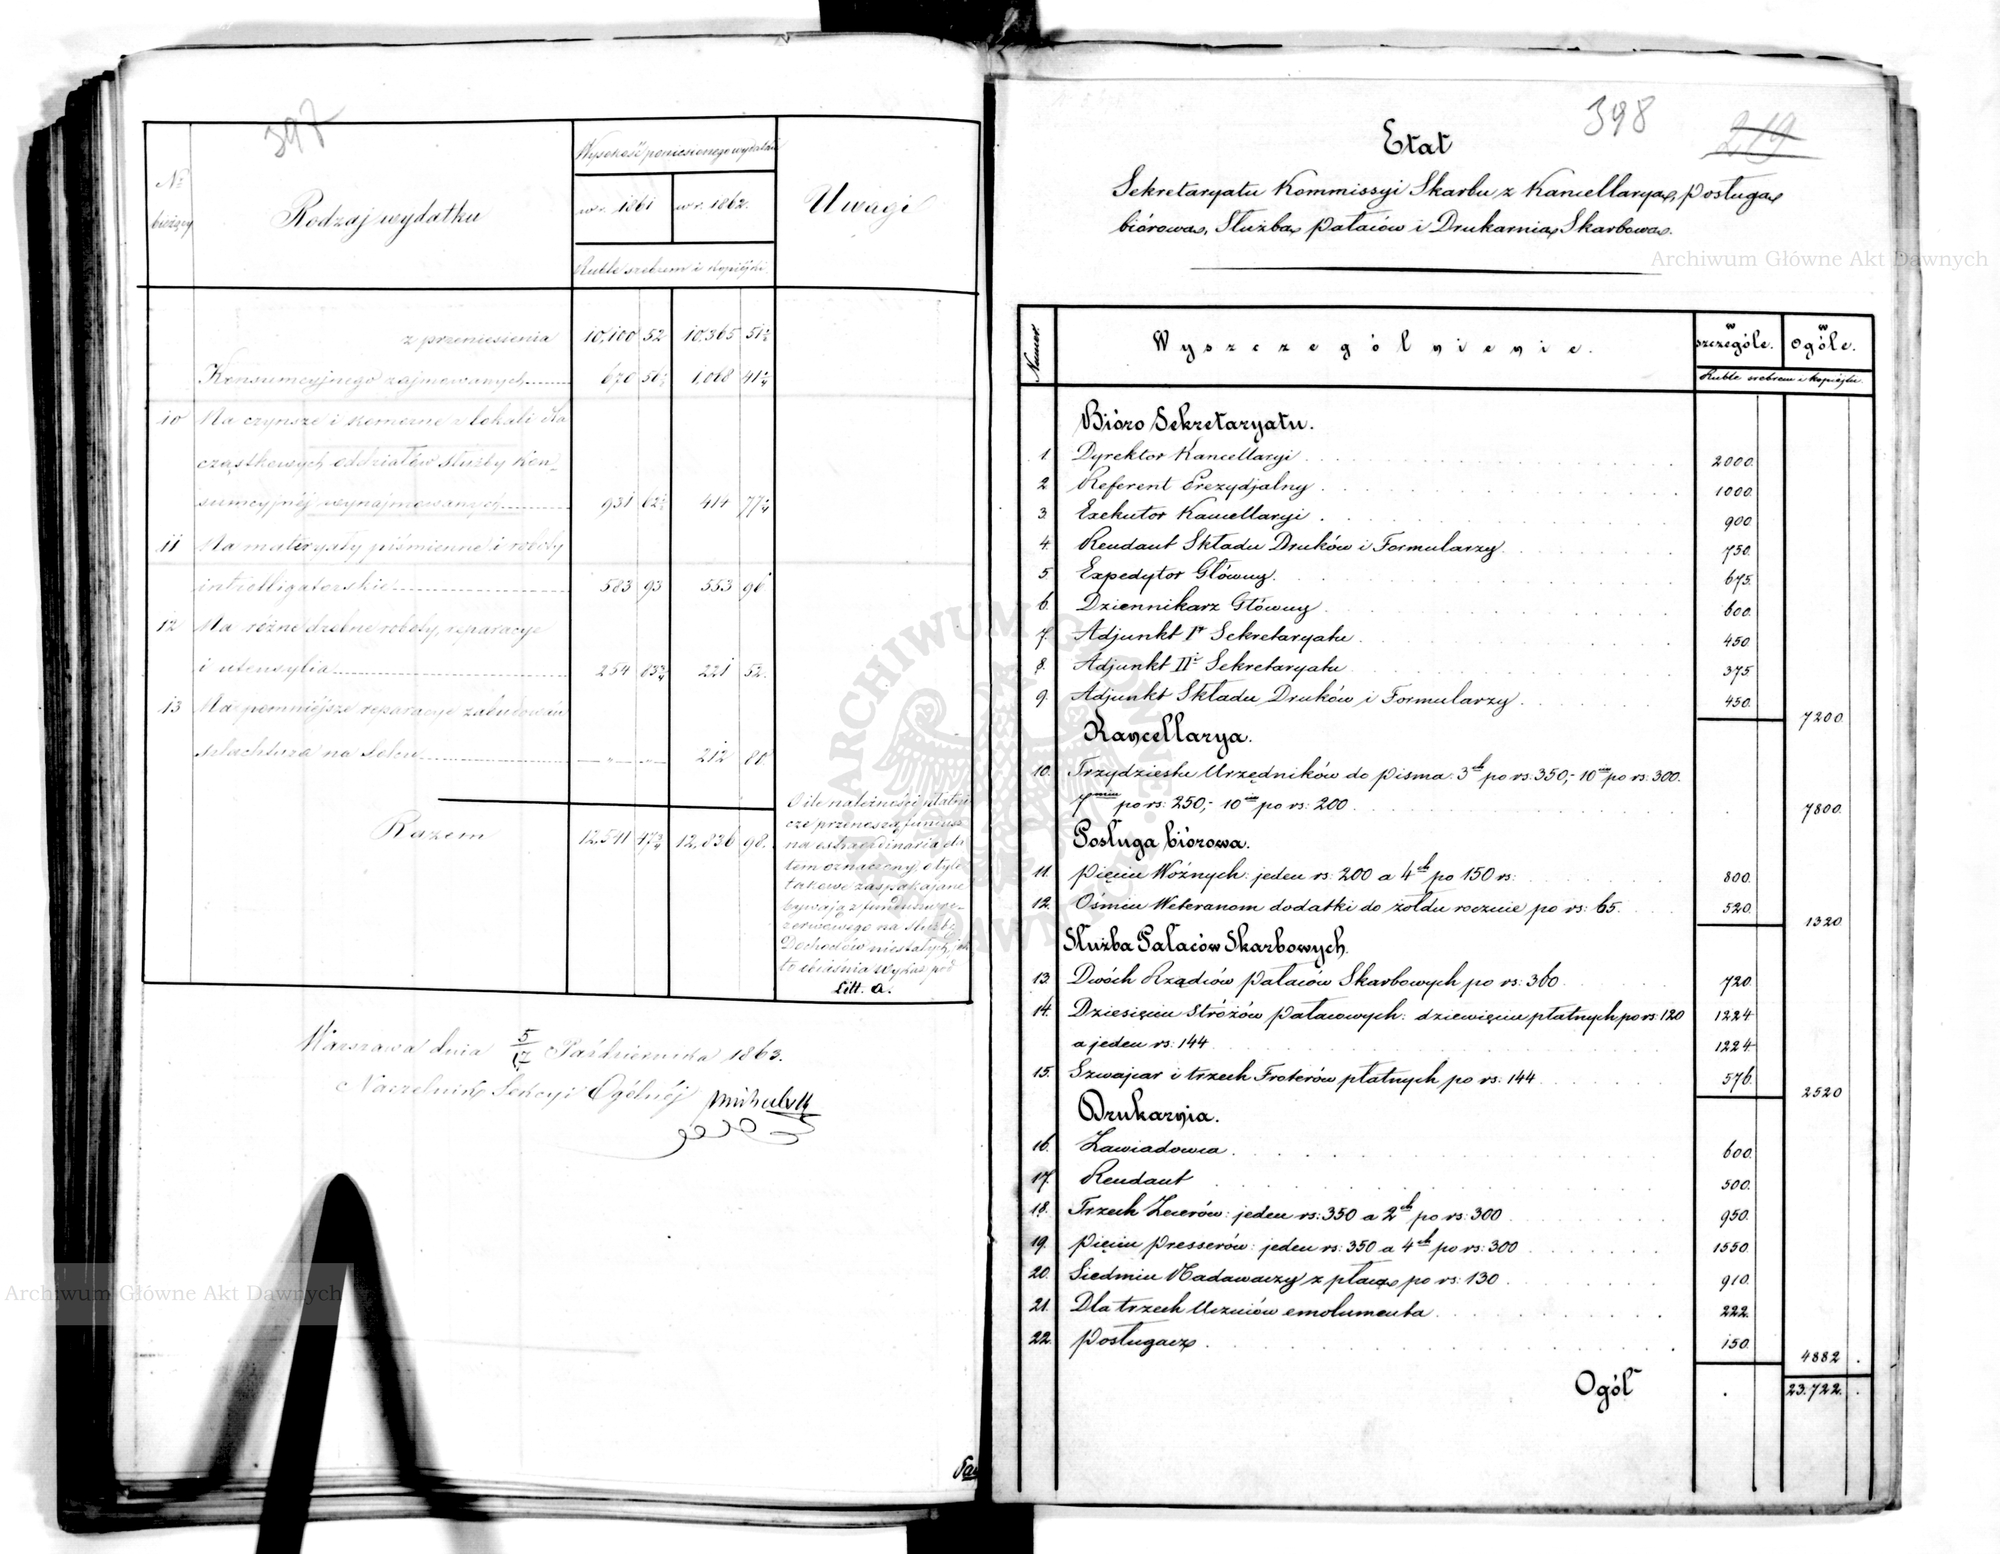 397
№ bieżący
Rodzaj wydatku
Wysokość poniesionego wydatku
w r. 1861
w r. 1862.
Ruble srebrem i kopiejki
Uwagi
z przeniesienia 10,100 52 10,365 51½
Konsumcyjnego zajmowanych 676 1,068
10 Na czynsze i komorne z lokali dla
cząstkowych oddziałów służby Kon-
sumcyjnej wynajmowanych 931 62½ 414
11 Na materyały piśmienne i roboty
introligatorskie 583 93 553 96
12 Na różne drobne roboty, reparacye
i utensylia 254 221 52.
13 Na pomniejsze reparacye zabudowań
na Solcu — „ — „ — 212 80
Razem 12,541 12,836 98.
O ile należności
cze przenoszą fundusz
na extraordinaria
tem oznaczony, o tyle
takowe zaspakajane
bywają z funduszu re-
zerwowego na służbę
Dochodów niestałych, jak
to objaśnia wykaz pod
Litt. a.
Warszawa dnia 5/17 Października 1863.
Naczelnik Sekcyi Ogólnéj
398
219
Etat
Sekretaryatu Kommissyi Skarbu z Kancellaryą, posługą
biórową, Służbą pałaców i Drukarnią Skarbową.
Numer
Wyszczególnienie.
w szczególe.
w Ogóle.
Ruble srebrem i kopiejki.
Bióro Sekretaryatu.
1. Dyrektor Kancellaryi 2000.
2 Referent Prezydjalny 1000.
3. Exekutor Kancellaryi 900
4. Rendant Składu Druków i Formularzy 750.
5. Expedytor Główny. 675.
6. Dziennikarz Główny 600.
7. Adjunkt Iy Sekretaryatu 450.
8. Adjunkt IIi Sekretaryatu 375
9. Adjunkt Składu Druków i Formularzy 450. 7200
Kancellarya.
10. Trzydziestu Urzędników do pisma: 3ch po rs: 350,- 10iu po rs: 300.
7miu po rs: 250,- 10iu po rs: 200 7800
Posługa biórowa.
11. Pięciu Woźnych: jeden rs: 200 a 4ch po 150 rs: 800.
12. Ośmiu Weteranom dodatki do żołdu rocznie po rs: 65. 520. 1320
Służba Pałaców Skarbowych.
13. Dwóch Rządców pałaców Skarbowych po rs: 360 720.
14. Dziesięciu Stróżów pałacowych: dziewięciu płatnych po rs: 120 1224
a jeden rs: 144 1224.
15. Szwajcar i trzech Froterów płatnych po rs: 144 576. 2520
Drukarnia.
16. Zawiadowca 600.
17. Rendant 500.
18. Trzech Zecerów: jeden rs: 350 a 2ch po rs: 300 950.
19. Pięciu presserów: jeden rs: 350 a 4ch po rs: 300 1550.
20. Siedmiu Nadawaczy z płacą po rs: 130 910.
21. Dla trzech Uczniów emolumenta 222.
22. Posługacz 150. 4882
Ogół 23.722.
Archiwum Główne Akt Dawnych
Archiwum Główne Akt Dawnych